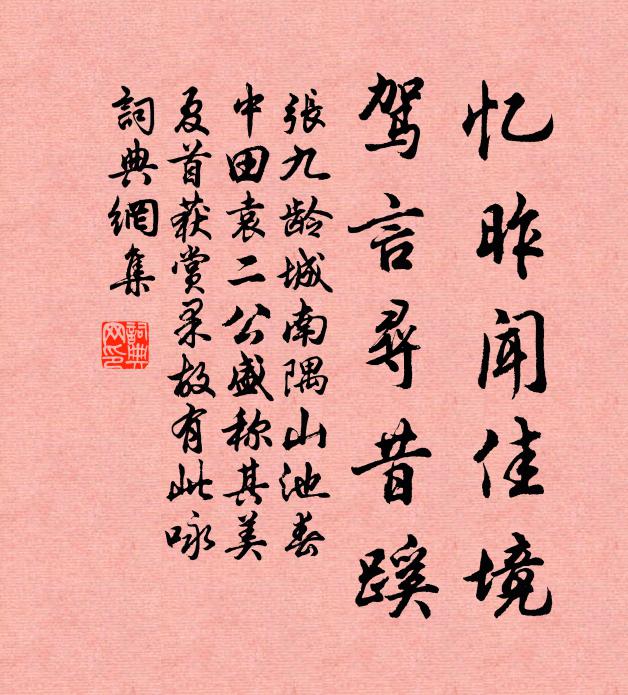 忆昨闻佳境
驾言寻昔蹊
張九龄城南隅山池春
中田袁二公盛称其美
夏首获赏果故有此咏
詞典網集
詞典網印